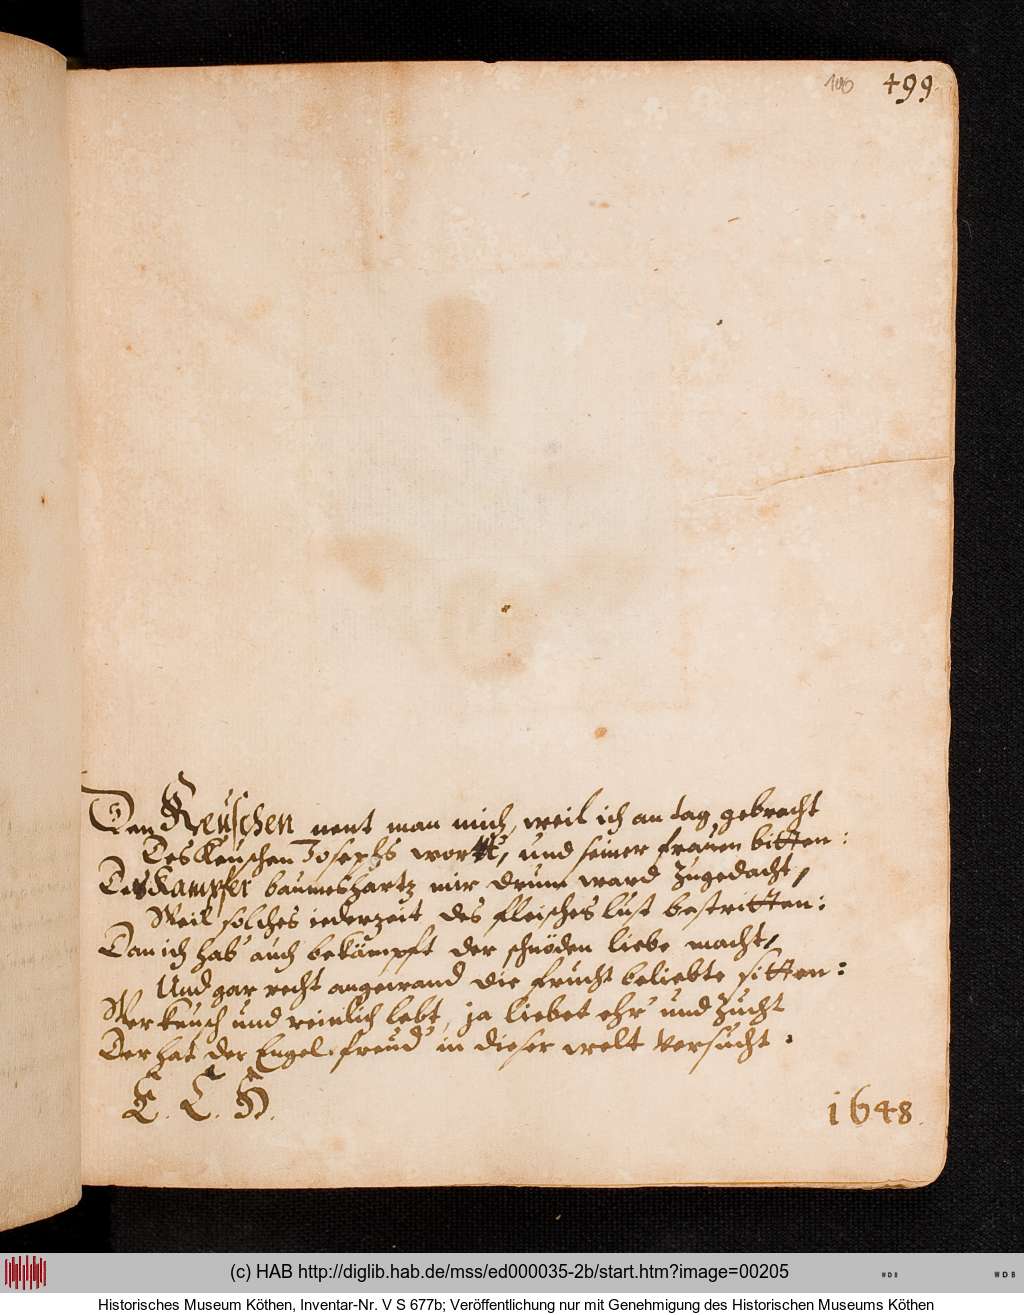 100 499
Den Keuschen nent man mich, weil ich an tag gebracht
Des Keuschen Josephs wortt, und seiner frauen bitten:
Des Kampfer baumes hartz mir drum ward Zugedacht,
Weil solches iederzeit des fleisches lust bestritten:
Dan ich hab' auch bekämpft der schnöden liebe macht,
Und gar recht angewand die frucht beliebte sitten:
Wer keusch und reinlich lebt, ja liebet ehr' und Zucht
Der hat der Engel freud' in dieser welt versucht.
E. C. H.
1648.
(c) HAB http://diglib.hab.de/mss/ed000035-2b/start.htm?image=00205
WDB WDB
Historisches Museum Köthen, Inventar-Nr. V S 677b; Veröffentlichung nur mit Genehmigung des Historischen Museums Köthen